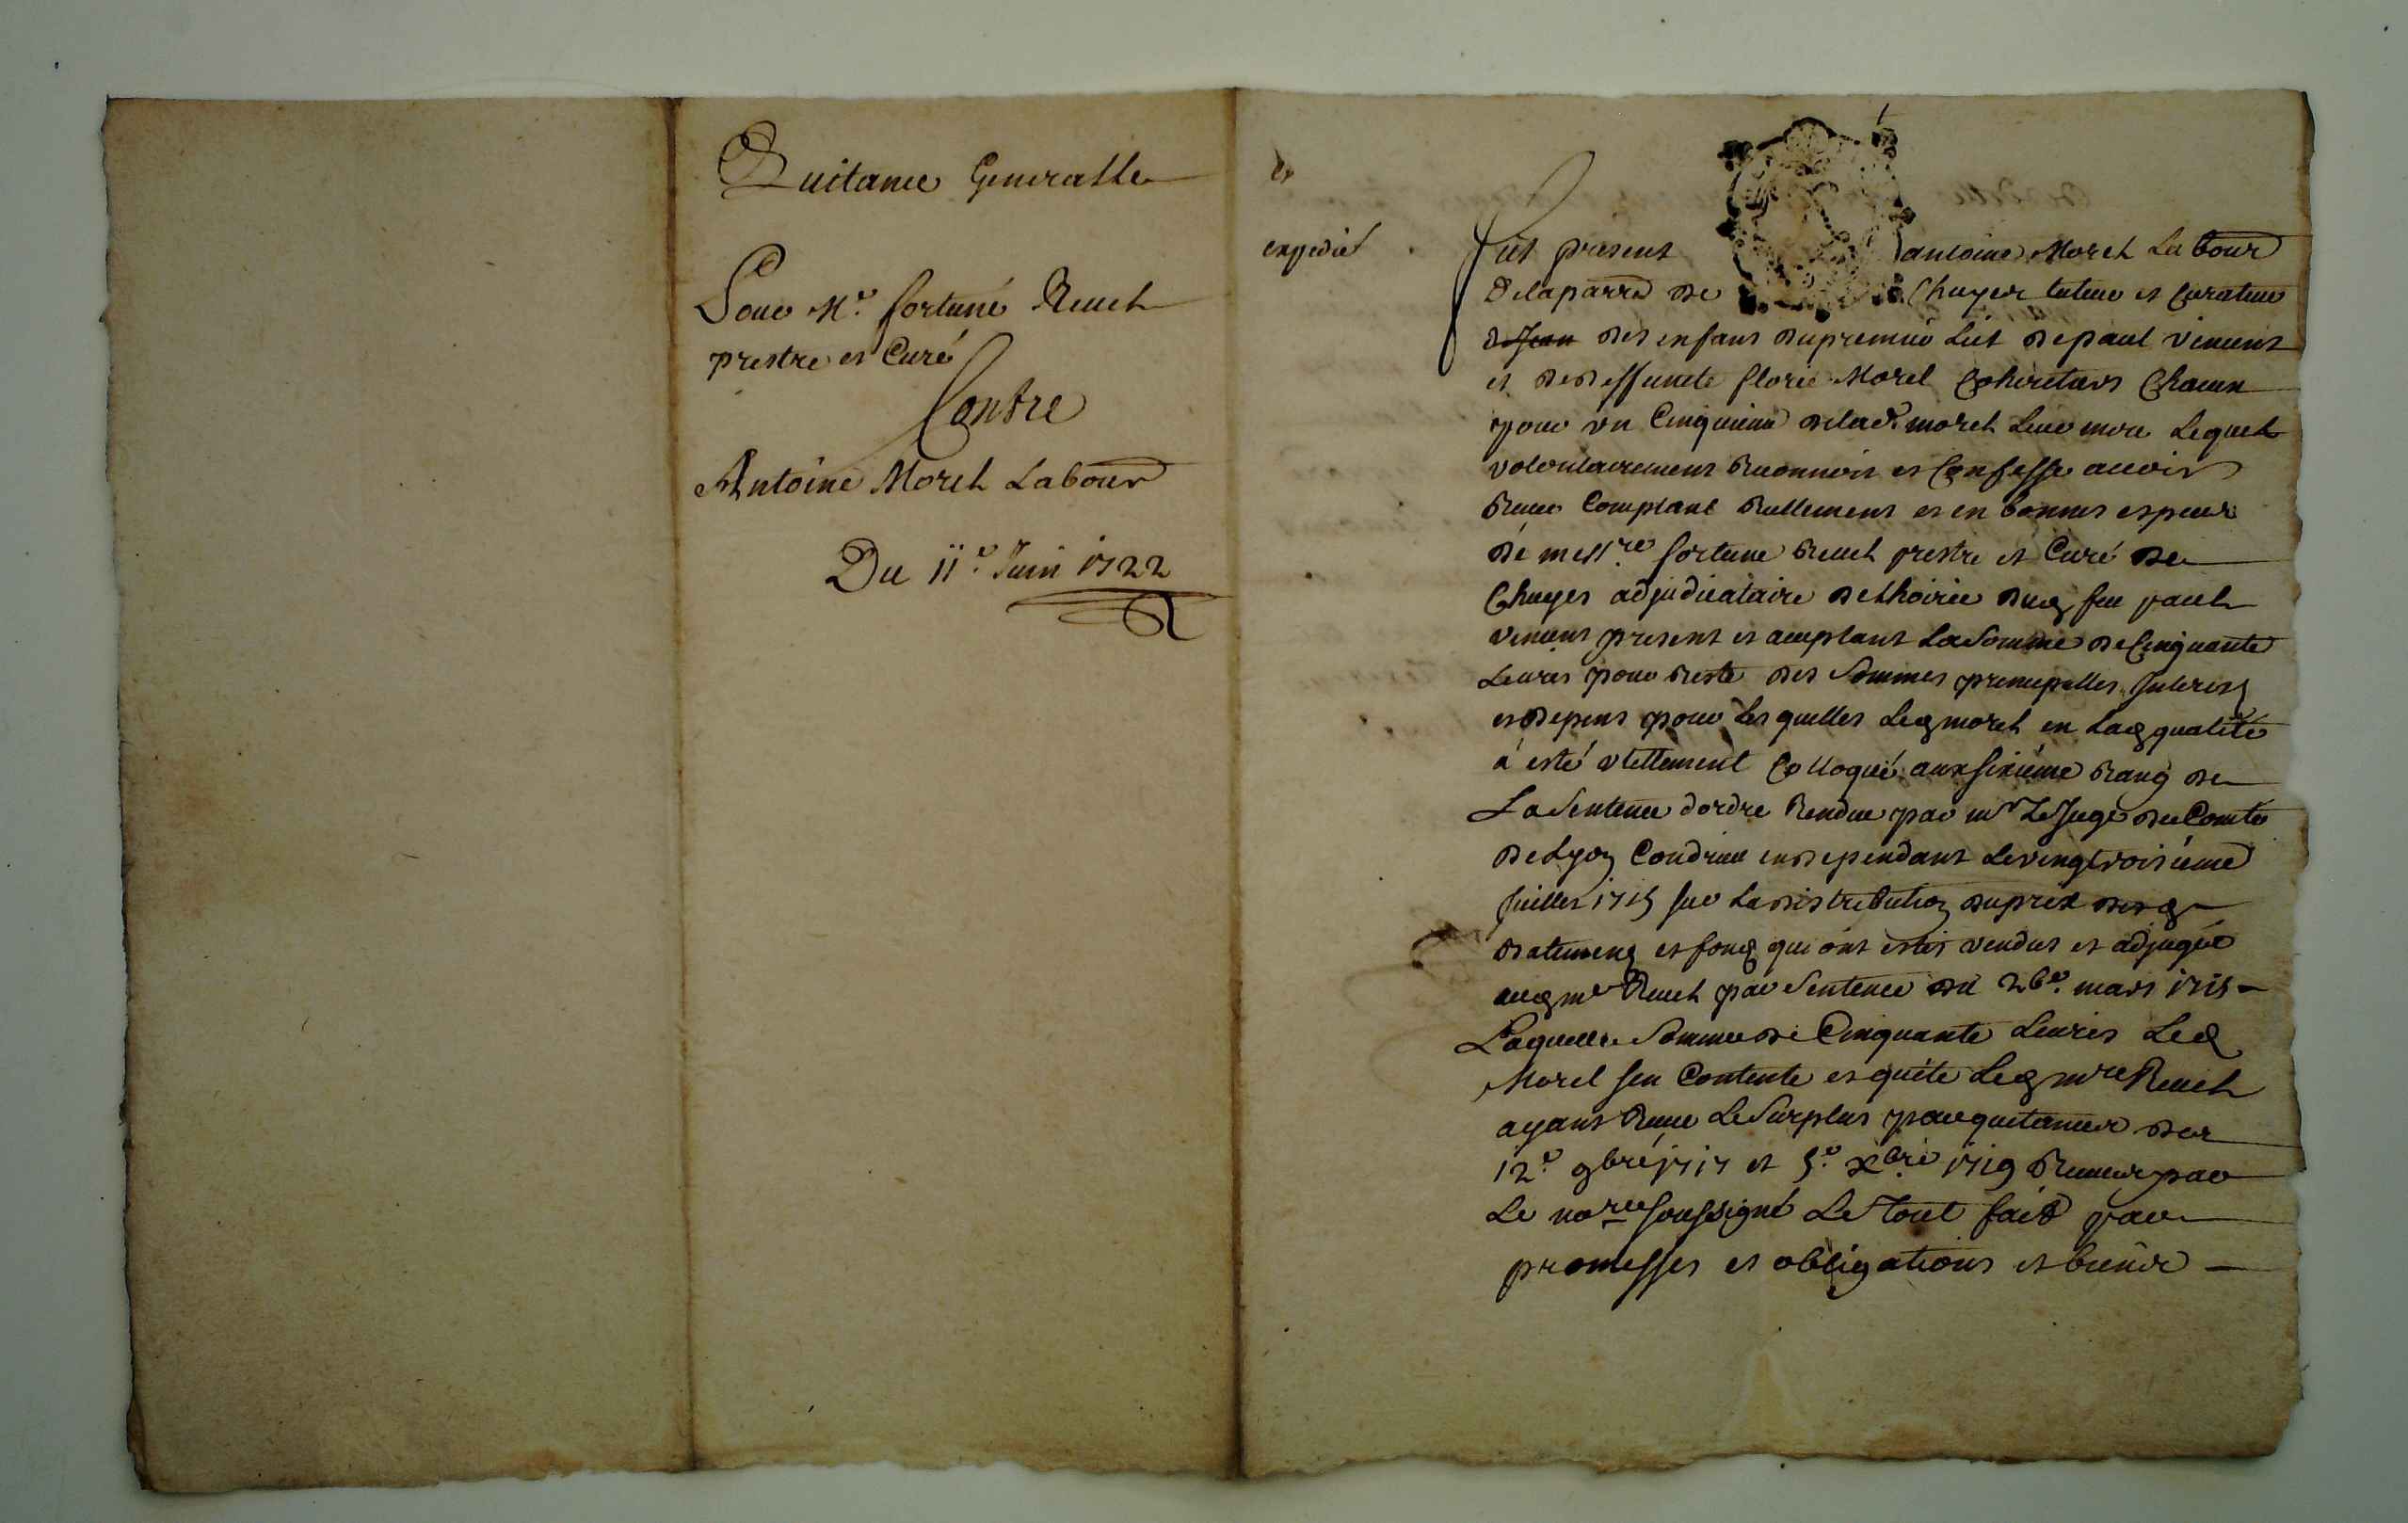 Quitance Generalle
Pour Mr. fortuné Ruuel
prestre et Curé
Contre
Antoine Morel Labour
Du 11e. Juin 1722
expedié
fut present antoine Morel Labour
de la parre de Chuyer tuteur et Curateur
des enfans du premier Lict de paul vincent
et de deffuncte florie Morel Coheritiers Chacun
pour vn Cinquieme de lad. morel Leur mere Lequel
volontairement Reconnoit et Confesse auoir
Receu Comptant Reellement et en bonnes especes
de messre. fortune prestre et Curé de
Chuyes adjudicataire de Lhoirie dud feu paul
vincent present et aceptant La Somme de Cinquante
Liures pour Reste des Sommes principalles Interests
et depens pour Lesquelles Led morel en Lad qualité
à esté vtillement Colloqué aux sixiéme Rang de
La Sentence dordre Rendue par mr Le Juge du Comté
de Lyon Condrieu en dependant Le vingtroisiéme
Juillet 1715 sur La distribution du prix desd
batimens et fond qui ont estés vendus et adjugés
aud mr par Sentence du 26e. mars 1715
Laquelle Somme de Cinquante Liures Led
Morel sen Contente et quite Led mre
ayant Receu Le Surplus par quitances des
12e. 9bre 1717 et 5e. Xbre 1719 Receues par
Le nore soussigné Le tout fait par
promesses et obligations et biens